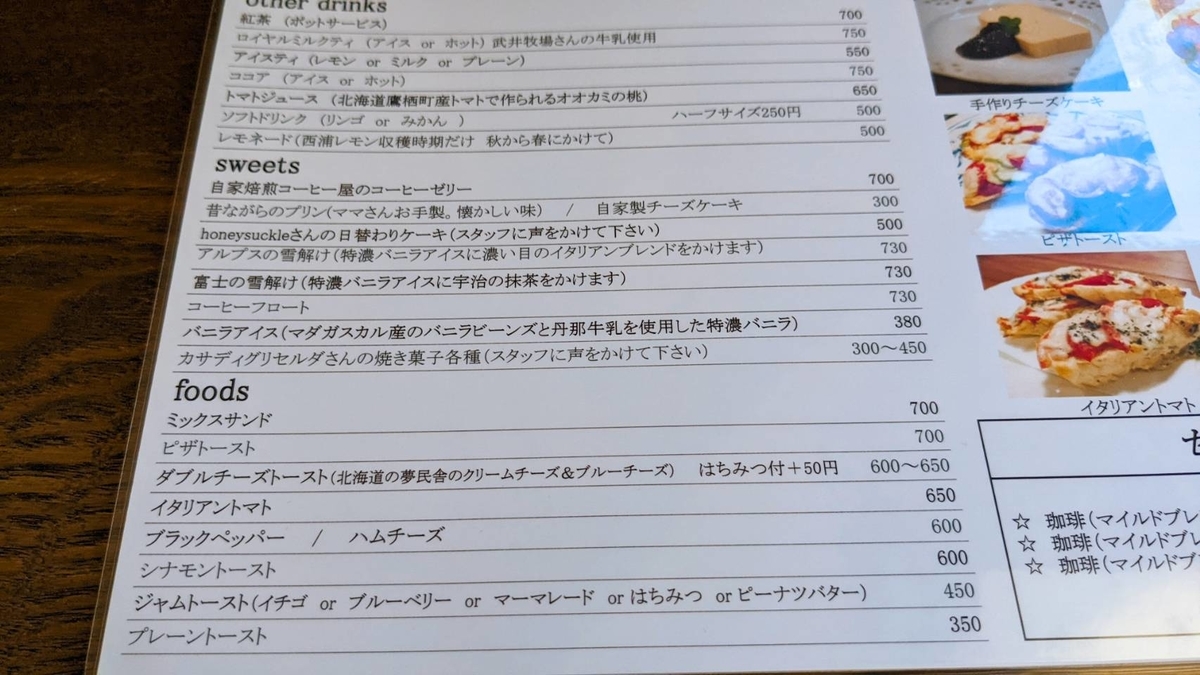 other drinks
紅茶 (ポットサービス) 700
ロイヤルミルクティ (アイス or ホット) 武井牧場さんの牛乳使用 750
アイスティ (レモン or ミルク or プレーン) 550
ココア (アイス or ホット) 750
トマトジュース (北海道鷹栖町産トマトで作られるオオカミの桃) 650
ソフトドリンク (リンゴ or みかん ) ハーフサイズ250円 500
レモネード(西浦レモン収穫時期だけ 秋から春にかけて) 500
sweets
自家焙煎コーヒー屋のコーヒーゼリー 700
昔ながらのプリン(ママさんお手製。懐かしい味) / 自家製チーズケーキ 300
honeysuckleさんの日替わりケーキ(スタッフに声をかけて下さい) 500
アルプスの雪解け(特濃バニラアイスに濃い目のイタリアンブレンドをかけます) 730
富士の雪解け(特濃バニラアイスに宇治の抹茶をかけます) 730
コーヒーフロート 730
バニラアイス(マダガスカル産のバニラビーンズと丹那牛乳を使用した特濃バニラ) 380
カサディグリセルダさんの焼き菓子各種(スタッフに声をかけて下さい) 300～450
foods
ミックスサンド 700
ピザトースト 700
ダブルチーズトースト(北海道の夢民舎のクリームチーズ&ブルーチーズ) はちみつ付+50円 600～650
イタリアントマト 650
ブラックペッパー / ハムチーズ 600
シナモントースト 600
ジャムトースト(イチゴ or ブルーベリー or マーマレード or はちみつ or ピーナツバター) 450
プレーントースト 350
手作りチーズケーキ
ピザトースト
イタリアントマト
☆ 珈琲(マイルドブレ
☆ 珈琲(マイルドブレ
☆ 珈琲(マイルドブ